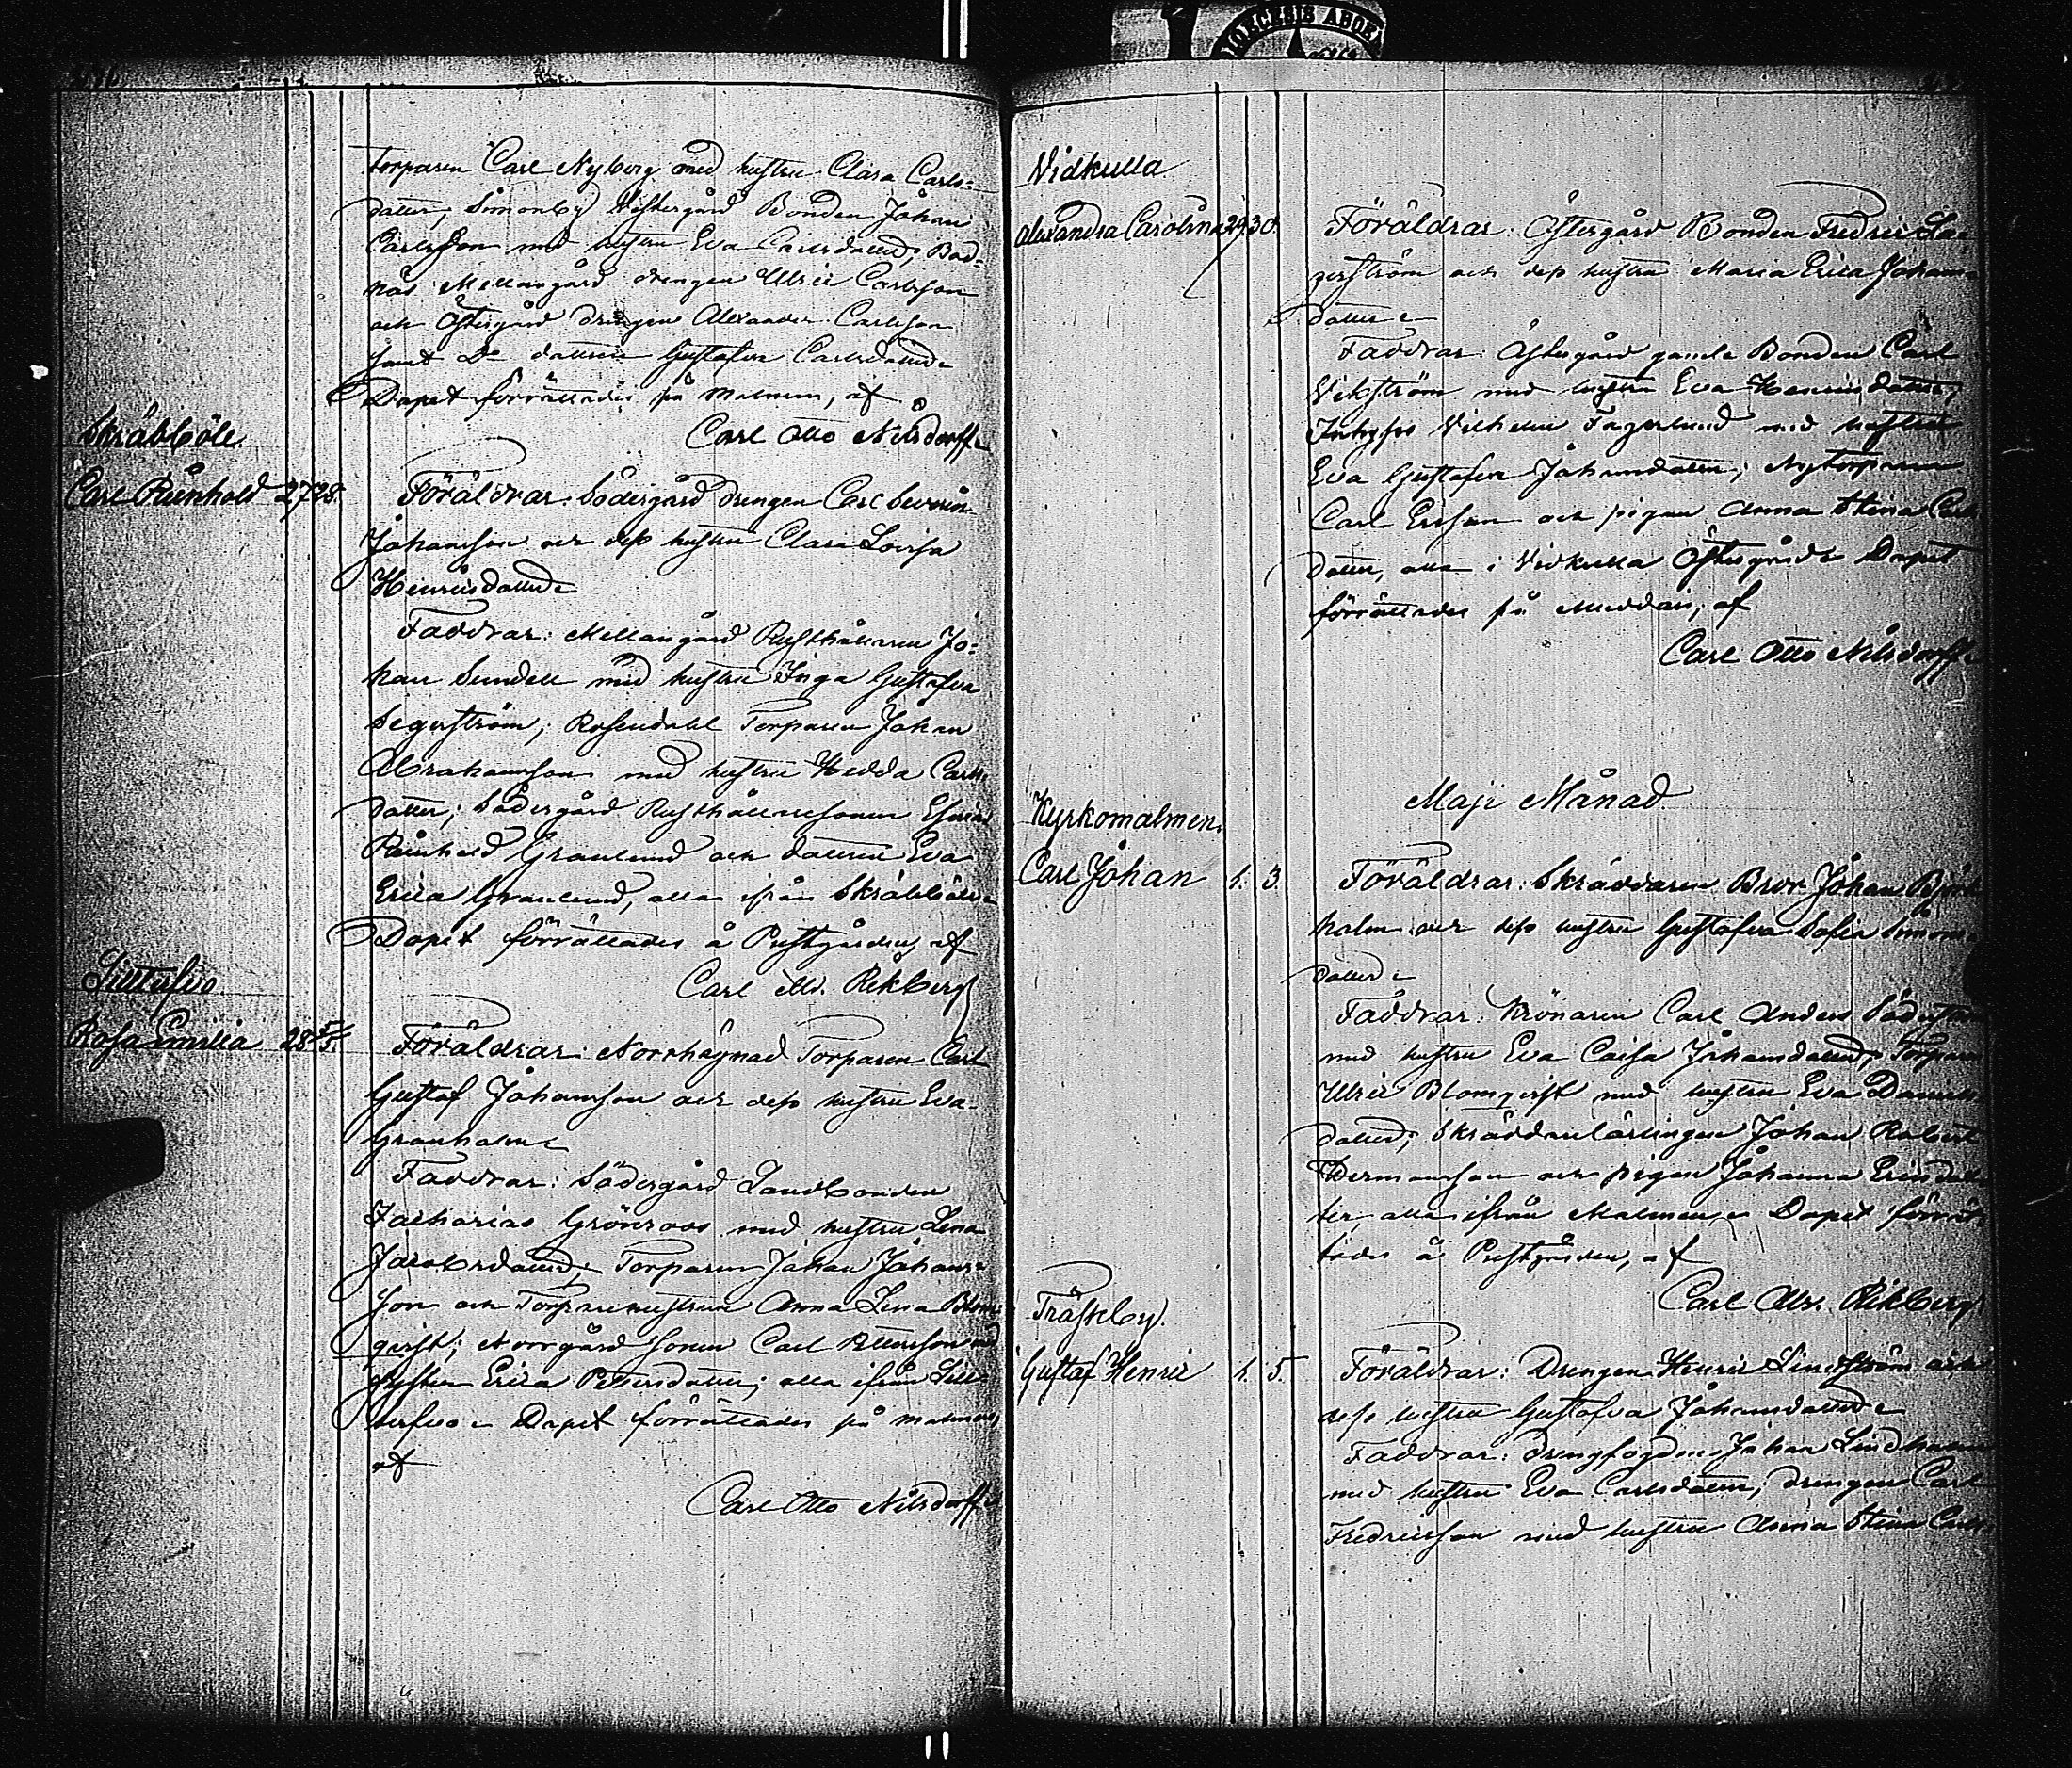 DIOECESIS ABOE
Torparen Carl Nyberg med hustru Clara Carls-
dotter; Simonby Westergård Bonden Johan
Carlsson med hustru Eva Carlsdotter; Bod-
näs Mellangård drengen Ulric Carlsson
och Östergård drengen Alexander Carlsson
samt Do dottren Gustafva Carlsdotter
Dopet förrättades på Malmen, af
Carl Otto Nilsdorff
Skräbböle
Carl Reinhold 27 28.
Föräldrar: Södergård drengen Carl Severin
Johansson och dess hustru Clara Lovisa
Henricsdotter
Faddrar: Mellangård Rusthållaren Jo-
han Sundell med hustru Inga Gustafva
Segerström; Rosendahl Torparen Johan
Abrahamsson med hustru Hedda Carls-
dotter; Södergård Rusthållaresonen
Reinhold Granlund och dottren Eva
Erica Granlund, alla ifrån Skräbböle
Dopet förrättades å Prestgården, af
Carl Rikberg
Rosa Emilia 28
Föräldrar: Norrhägnad Torparen Carl
Gustaf Johansson och dess hustru Eva
Granholm
Faddrar: Södergård Landbonden
Zacharias Grönroos med hustru Lena
Jacobsdotter; Torparen Johan Johans-
son och Torparehustrun Anna Lena Blom-
qvist; Norrgård sonen Carl Pettersson med
hustru Erica Pettersdotter; alla ifrån
Dopet förrättades på Malmen,
af
Carl Otto Nilsdorff
Vidkulla
Alexandra Carolina 29. 30.
Föräldrar: Östergård Bonden Fredric La-
gerström och dess hustru Maria Erica Johans-
dotter
Faddrar: Östergård gamla Bonden Carl
Vikström med hustru Eva Henricsdotter,
Inhyses Vilhelm Fagerlund med hustru
Eva Gustafva Johansdotter; Nytorparen
Carl Ersson och pigan Anna Stina Carls-
dotter, alla i Vidkulla Östergård Dopet
förrättades på Muddais, af
Carl Otto Nilsdorff
Maji Månad
Kyrkomalmen.
Carl Johan 1. 3.
Föräldrar: Skräddaren Bror Johan Björk-
holm och dess hustru Gustafva Sofia Simons-
dotter
Faddrar: Krönaren Carl Anders
med hustru Eva Caisa Johansdotter; Torparen
Ulric Blomqvist med hustru Eva Daniels-
dotter; Skräddarelärlingen Johan Robert
Hermansson och pigan Johanna Ericsdot-
ter, alla ifrån Malmen Dopet förrät-
tades å Prestgården, af
Carl Rikberg
Träskby.
Gustaf Henric 1. 5.
Föräldrar: Drengen Henric Lindström och
dess hustru Gustafva Johansdotter
Faddrar: Drengfogden Johan Lindholm
med hustru Eva Carlsdotter; drengen Carl
Fredricsson med hustru Anna Stina Carls-